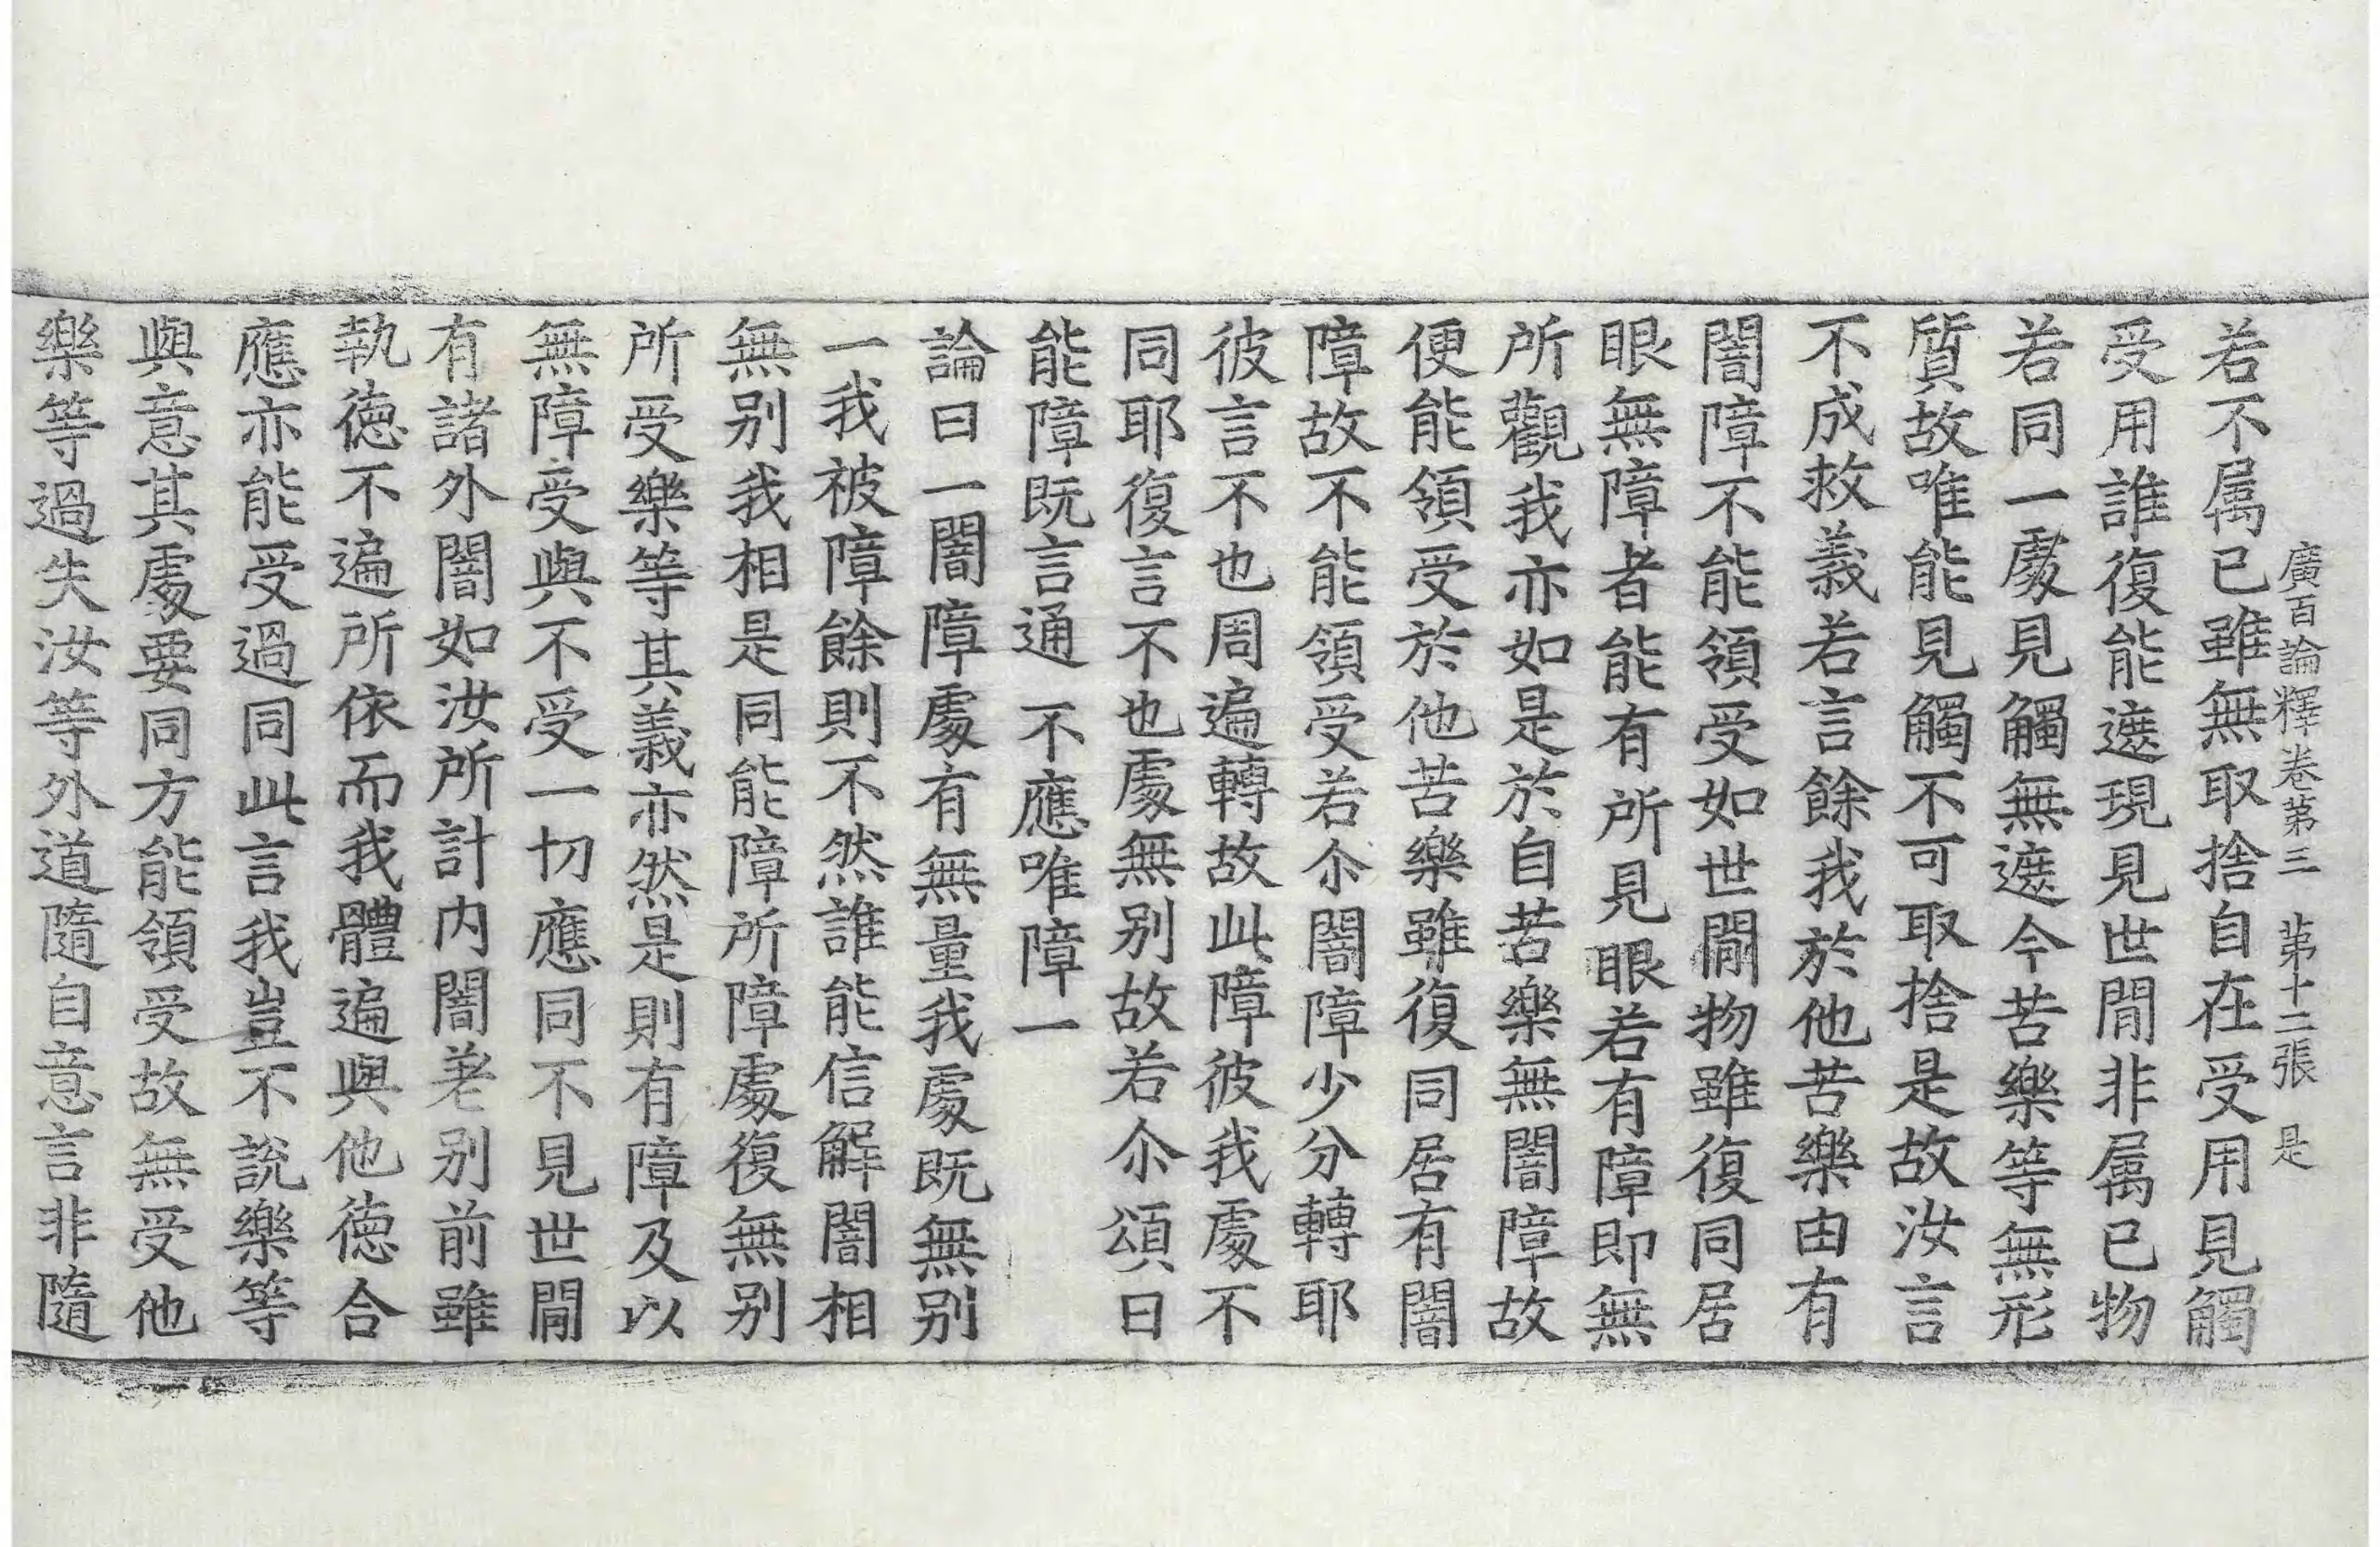 廣百論釋卷第三　第十二張　是
若不属已雖無取捨自在受用見觸
受用誰復能遮現見世間非属已物
若同一處見觸無遮今苦樂等無形
質故唯能見觸不可取捨是故汝言
不成救義若言餘我於他苦樂由有
闇障不能領受如世間物雖復同居
眼無障者能有所見眼若有障即無
所觀我亦如是於自苦樂無闇障故
便能領受於他苦樂雖復同居有闇
障故不能領受若尒闇障少分轉耶
彼言不也周遍轉故此障彼我處不
同耶復言不也處無別故若尒頌曰
能障既言通　不應唯障一
論曰一闇障處有無量我處既無別
一我被障餘則不然誰能信解闇相
無別我相是同能障所障處復無別
所受樂等其義亦然是則有障及以
無障受與不受一切應同不見世間
有諸外闇如汝所計内闇差別前雖
執徳不遍所依而我體遍與他徳合
應亦能受過同此言我豈不說樂等
與意其處要同方能領受故無受他
樂等過失汝等外道隨自意言非隨